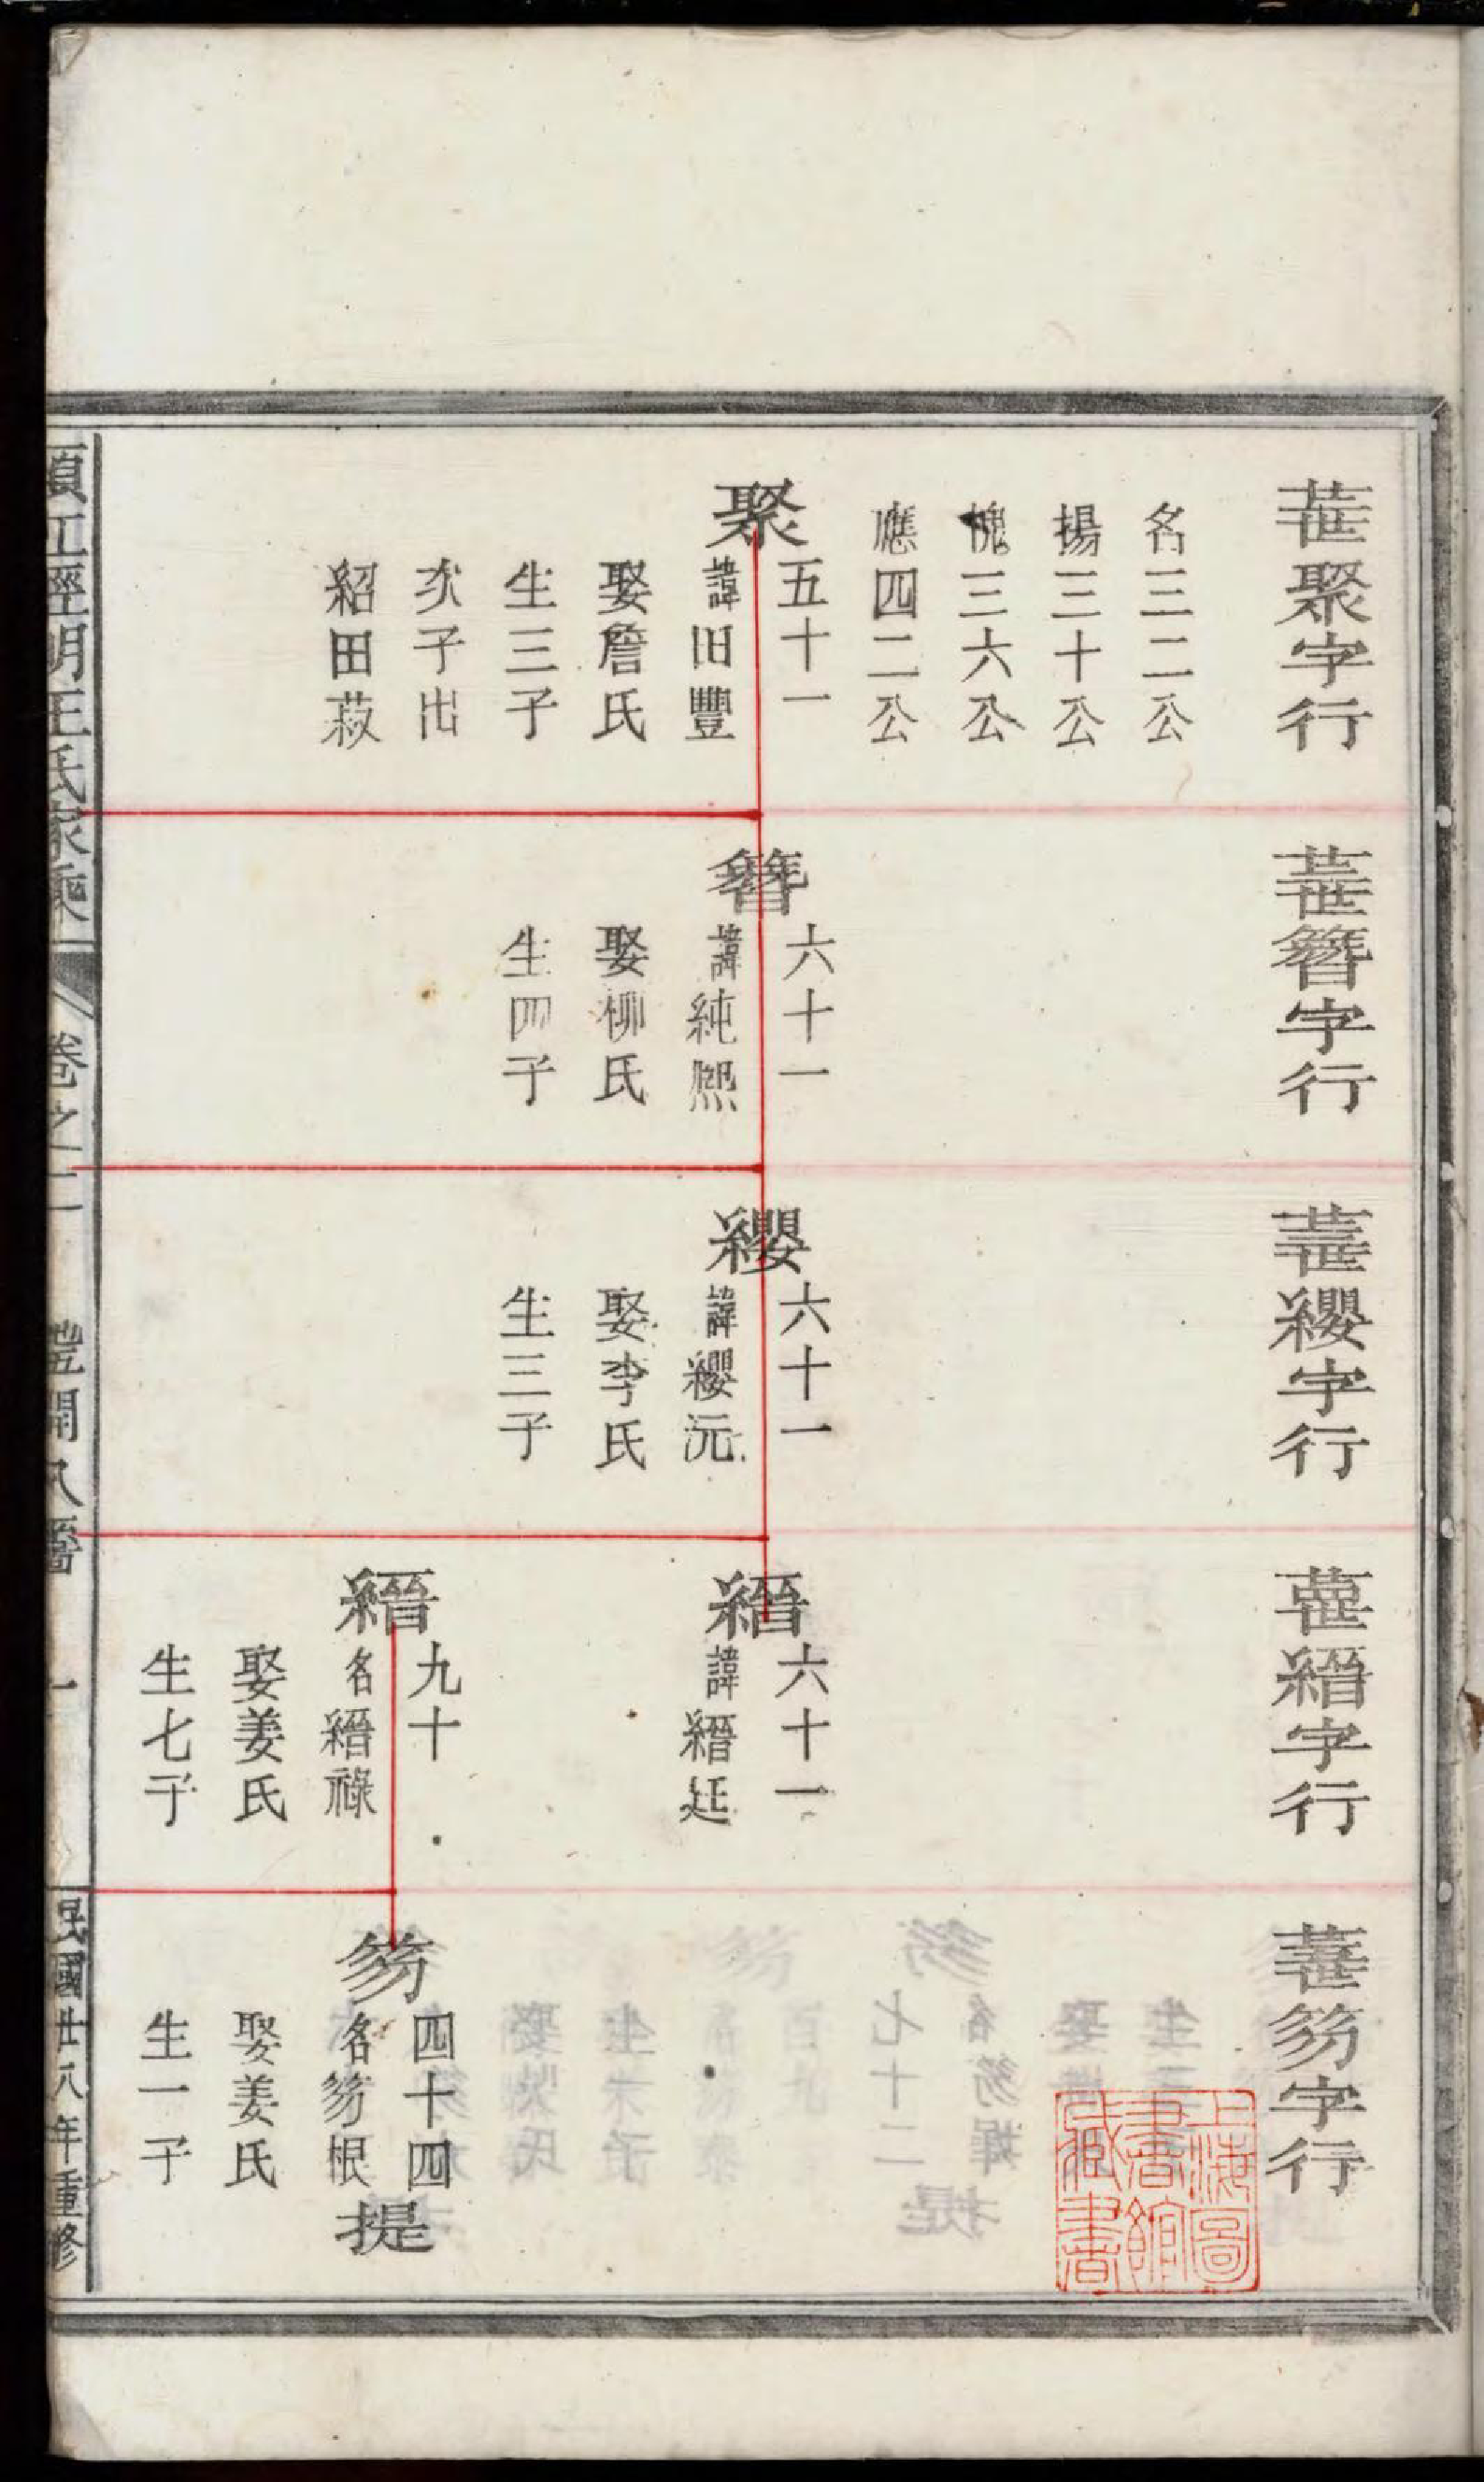 聚字行
名三二公
揚三十公
槐三六公
應四二公
聚
五十一
諱旧豐
娶詹氏
生三子
次子出
紹田菽
簪字行
簪
六十一
諱純熙
娶柳氏
生四子
纓字行
纓
六十一
諱纓沅
娶李氏
生三子
縉字行
縉
六十一
諱縉廷
縉
九十
名縉祿
娶姜氏
生七子
笏字行
笏
四十四
名笏根
娶姜氏
生一子
提
上海圖
書館
藏書
王氏家乘
卷之二
一
民國廿八年重修